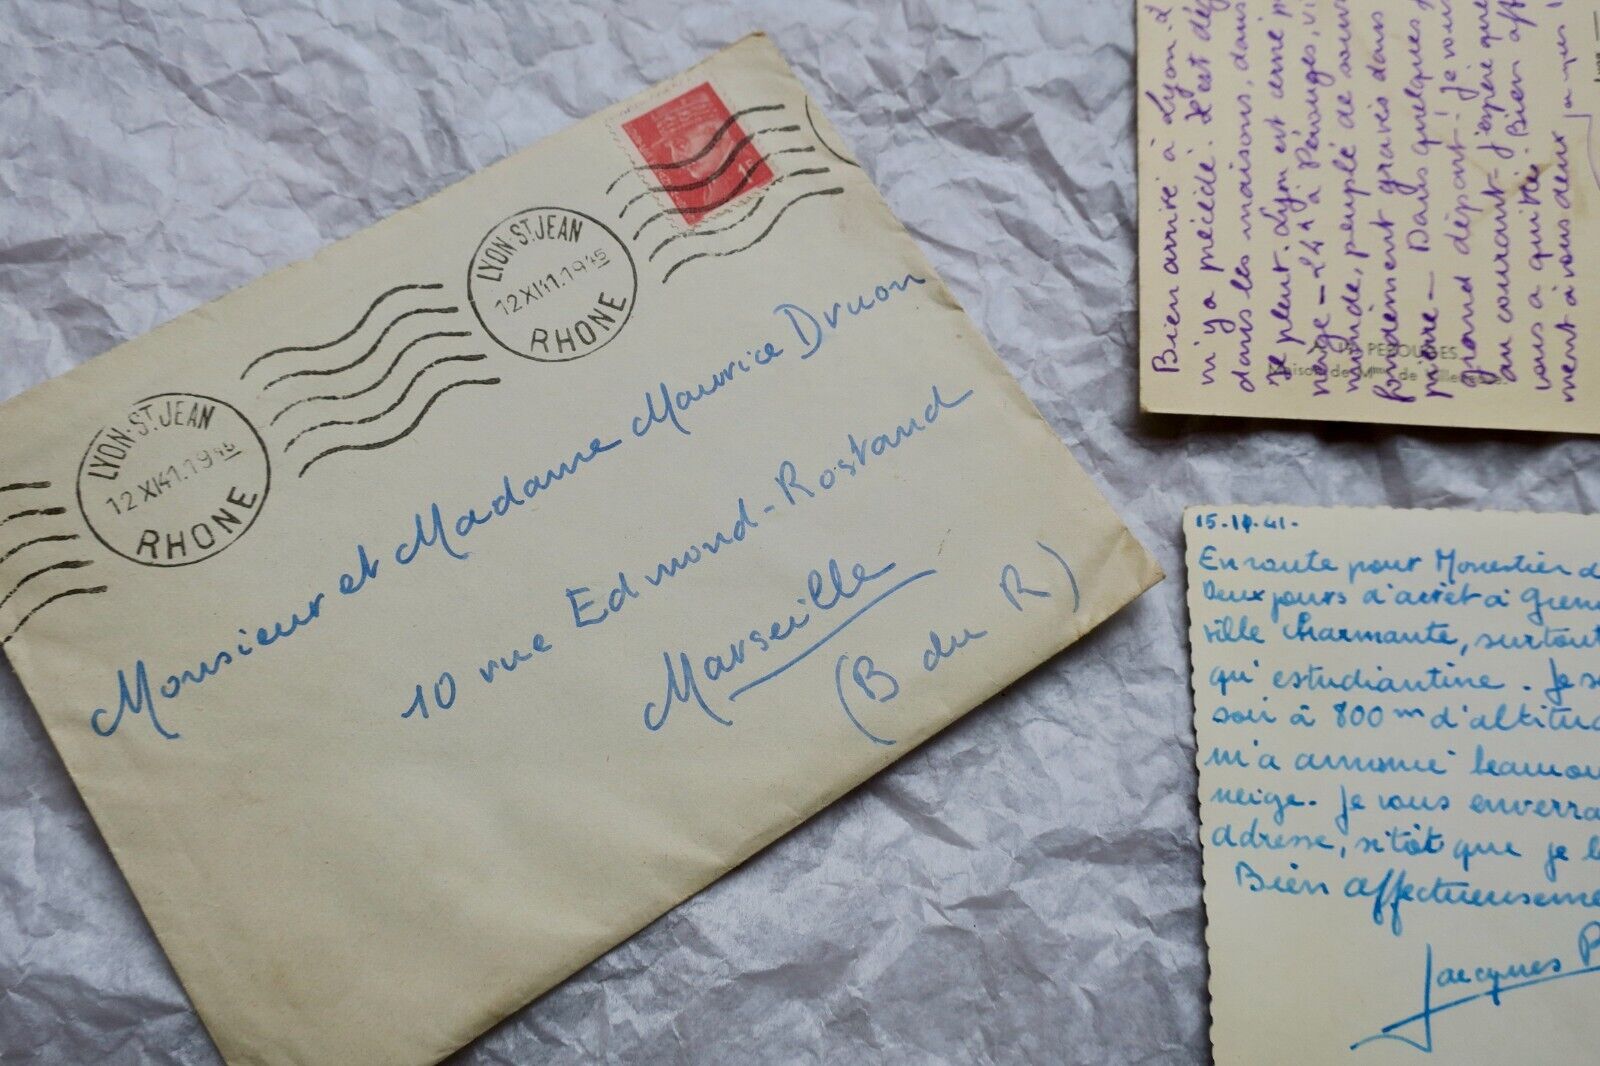 LYON-ST JEAN
12 XI 41.1945
RHONE
LYON-ST JEAN
12 XI 41.1945
RHONE
Monsieur et Madame Maurice Druon
10 rue Edmond-Rostand
Marseille
(B du R)
Bien arrivé à Lyon.
m'y a précédé. Il est
dans les maisons, dans
Je pleut. Lyon est cerné
neige - 24h à Pérouges,
monde, peuplé de
fondément gravés dans
Dans quelques
grand départ! Je vous
au courant - J'espère que
vous a quittés. Bien
ment à vous deux
PEROUGES
Maison de Mme de
15.11.41.
En route pour Monestier
Deux jours d'arrêt à
ville charmante, surtout
qu'estudiantine. Je
soir à 800m
m'a annoncé
neige. Je vous enverra
adresse, sitôt que je
Bien
Jacques